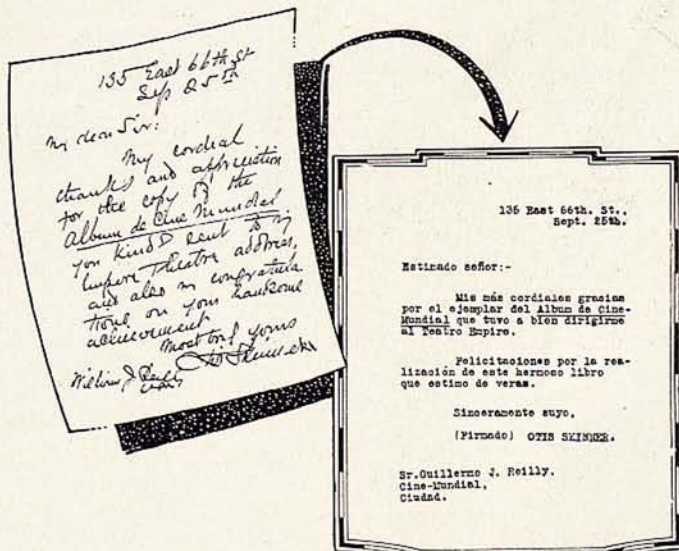 135 East 66th St
Sep 25th
My dear Sir:
My cordial
thanks and appreciation
for the copy of the
Album de Cine Mundial
you kindly sent to my
Empire Theatre address,
and also my congratula
tions on your handsome
achievement
Most truly yours
Otis Skinner
William J. Reilly
135 East 66th. St.,
Sept. 25th.
Estimado señor:-
Mis más cordiales gracias
por el ejemplar del Album de Cine-
Mundial que tuvo a bien dirigirme
al Teatro Empire.
Felicitaciones por la rea-
lización de este hermoso libro
que estimo de veras.
Sinceramente suyo,
(Firmado) OTIS SKINNER.
Sr.Guillermo J. Reilly.
Cine-Mundial,
Ciudad.